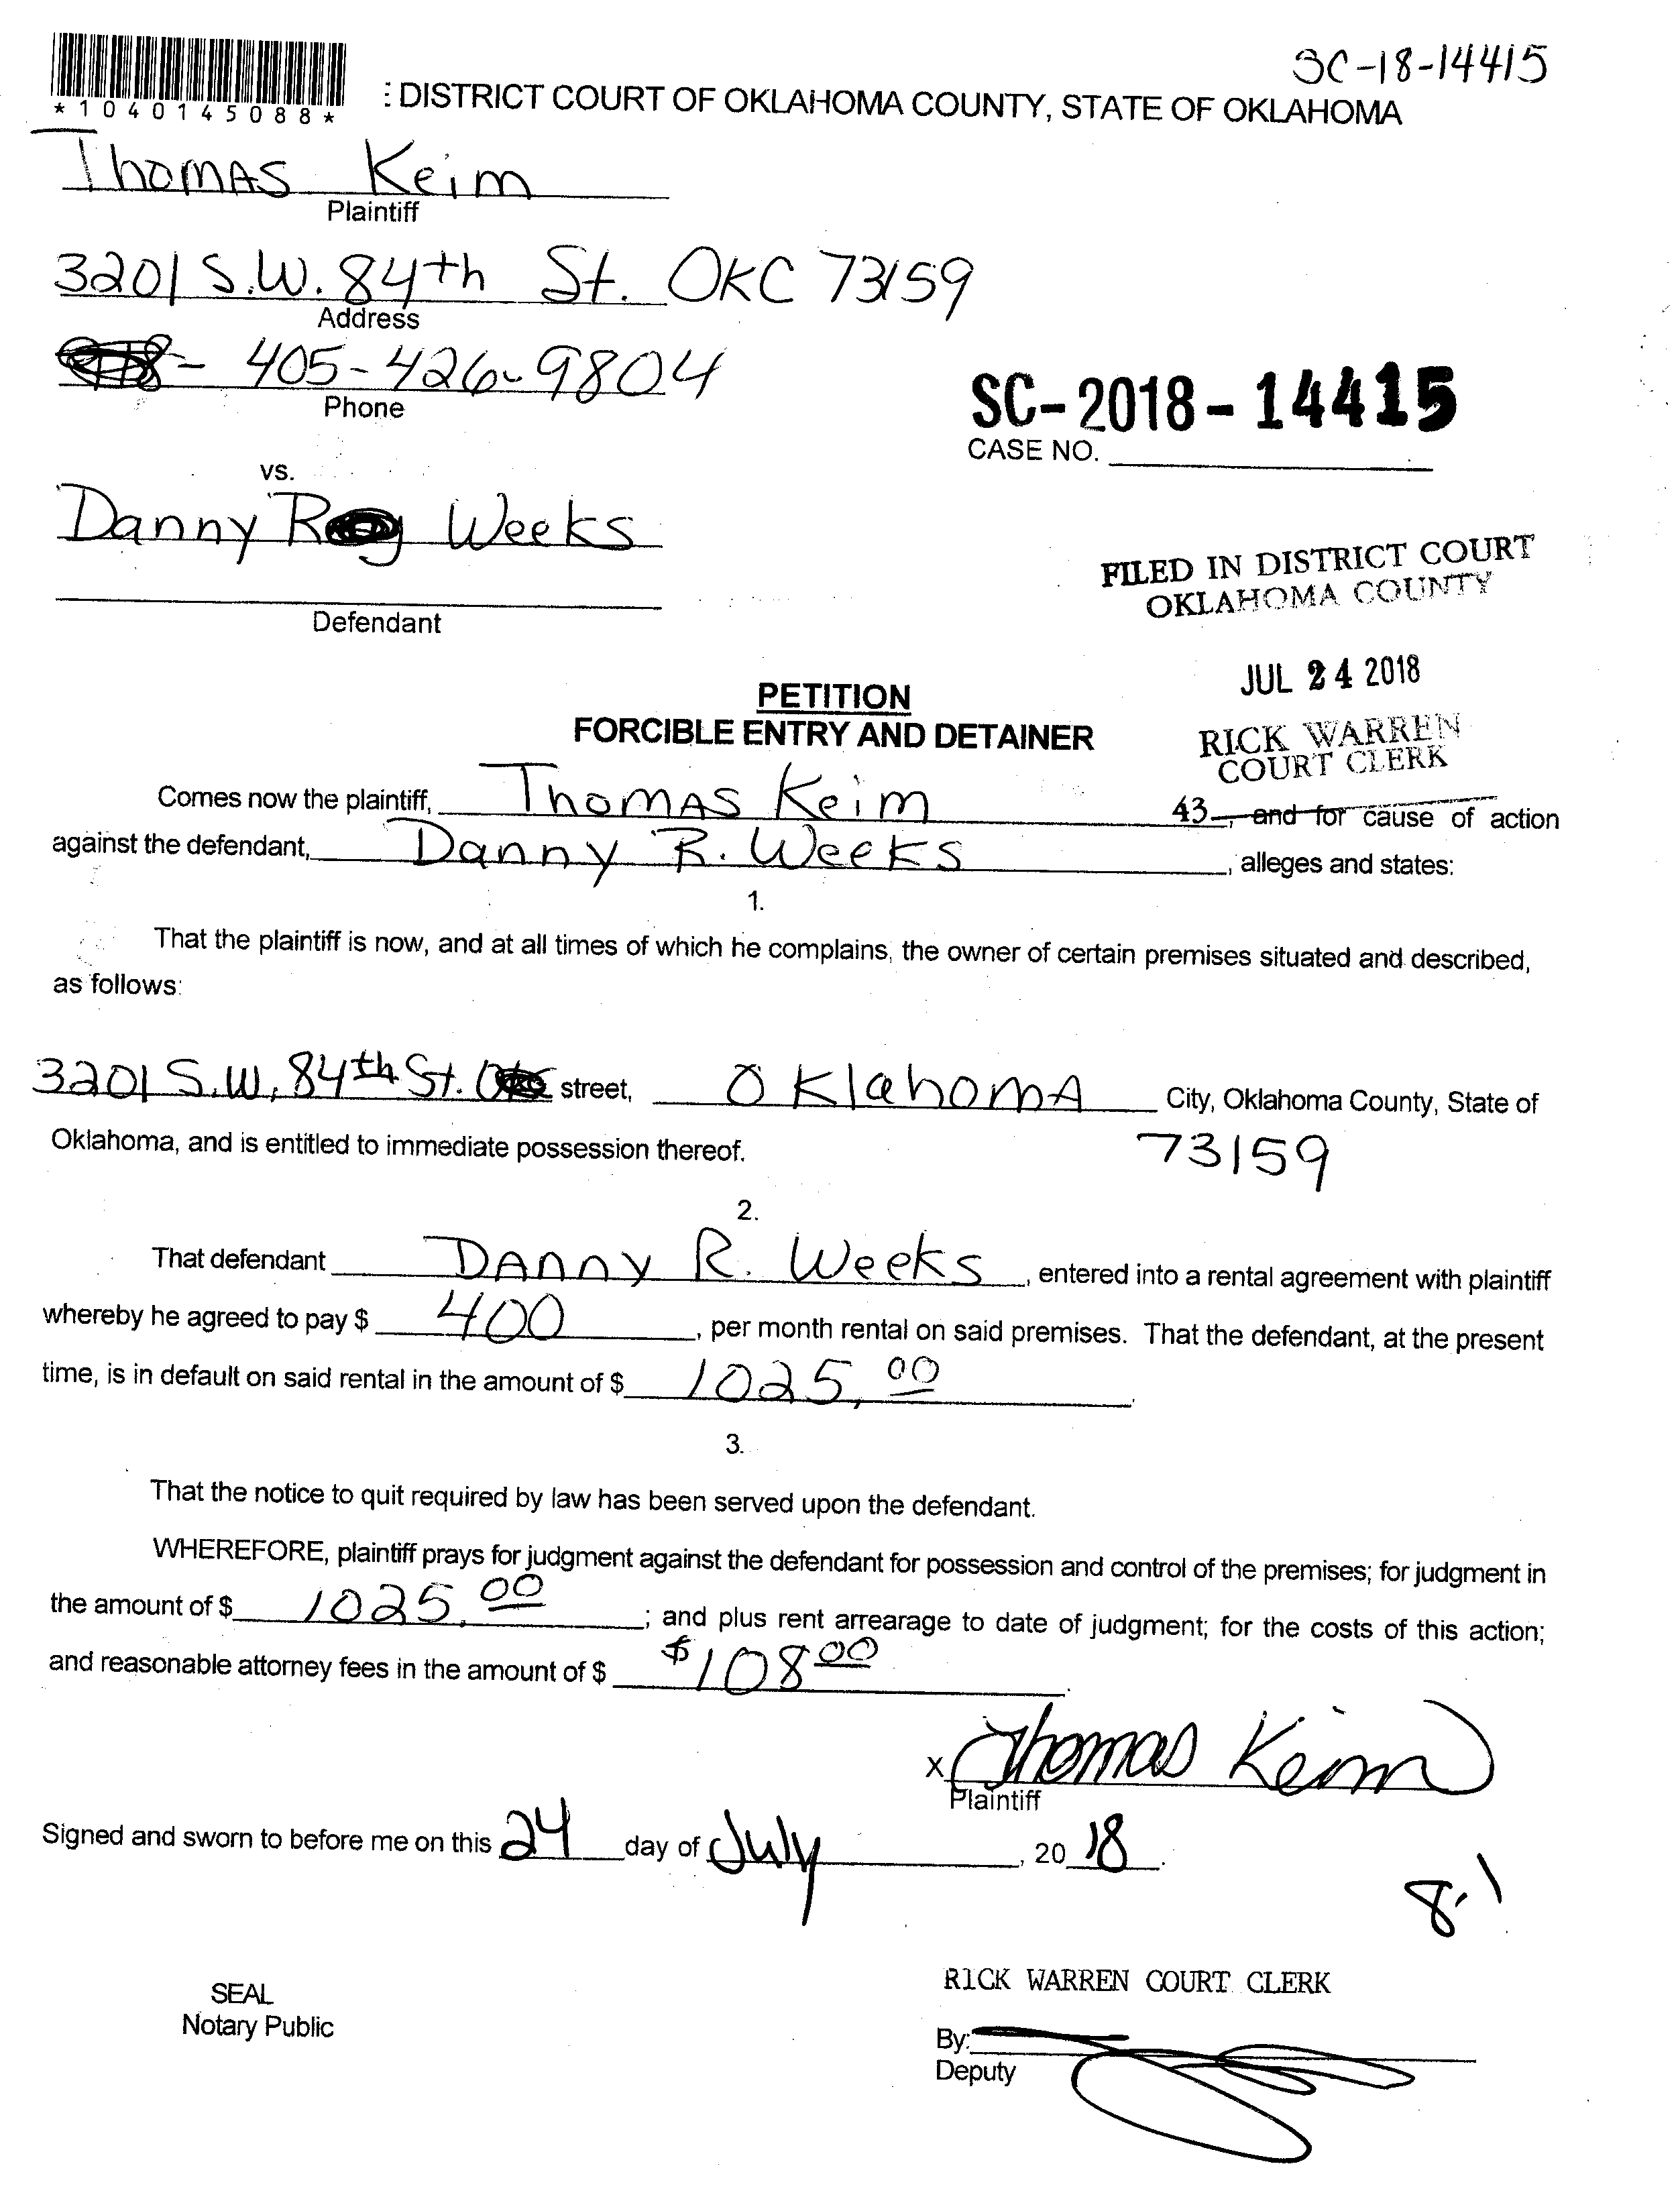 SC-18-14415
*1040145088*
: DISTRICT COURT OF OKLAHOMA COUNTY, STATE OF OKLAHOMA
Thomas Keim
Plaintiff
3201 S.W. 84th St. OKC 73159
Address
- 405-426-9804
Phone
SC-2018-14415
CASE NO.
vs.
Danny R Weeks
Defendant
FILED IN DISTRICT COURT
OKLAHOMA COUNTY
JUL 24 2018
RICK WARREN
COURT CLERK
43
PETITION
FORCIBLE ENTRY AND DETAINER
Comes now the plaintiff, Thomas Keim, and for cause of action
against the defendant, Danny R. Weeks, alleges and states:
1.
That the plaintiff is now, and at all times of which he complains, the owner of certain premises situated and described,
as follows:
3201 S.W. 84th St. street, Oklahoma City, Oklahoma County, State of
Oklahoma, and is entitled to immediate possession thereof. 73159
2.
That defendant Danny R. Weeks, entered into a rental agreement with plaintiff
whereby he agreed to pay $ 400, per month rental on said premises. That the defendant, at the present
time, is in default on said rental in the amount of $ 1025.00.
3.
That the notice to quit required by law has been served upon the defendant.
WHEREFORE, plaintiff prays for judgment against the defendant for possession and control of the premises; for judgment in
the amount of $ 1025.00; and plus rent arrearage to date of judgment; for the costs of this action;
and reasonable attorney fees in the amount of $ $108 00.
x Thomas Keim
Plaintiff
Signed and sworn to before me on this 24 day of July, 20 18.
8.1
SEAL
Notary Public
RICK WARREN COURT CLERK
By:
Deputy